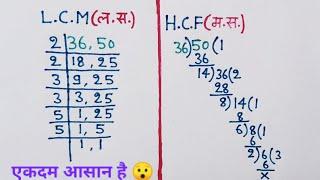 L.C.M(ल.स.)
2 | 36, 50
2 | 18, 25
3 | 9, 25
3 | 3, 25
5 | 1, 25
5 | 1, 5
1, 1
एकदम आसान है 😮
H.C.F(म.स.)
36)50(1
36
14)36(2
28
8)14(1
8
6)8(1
6
2)6(3
6
x